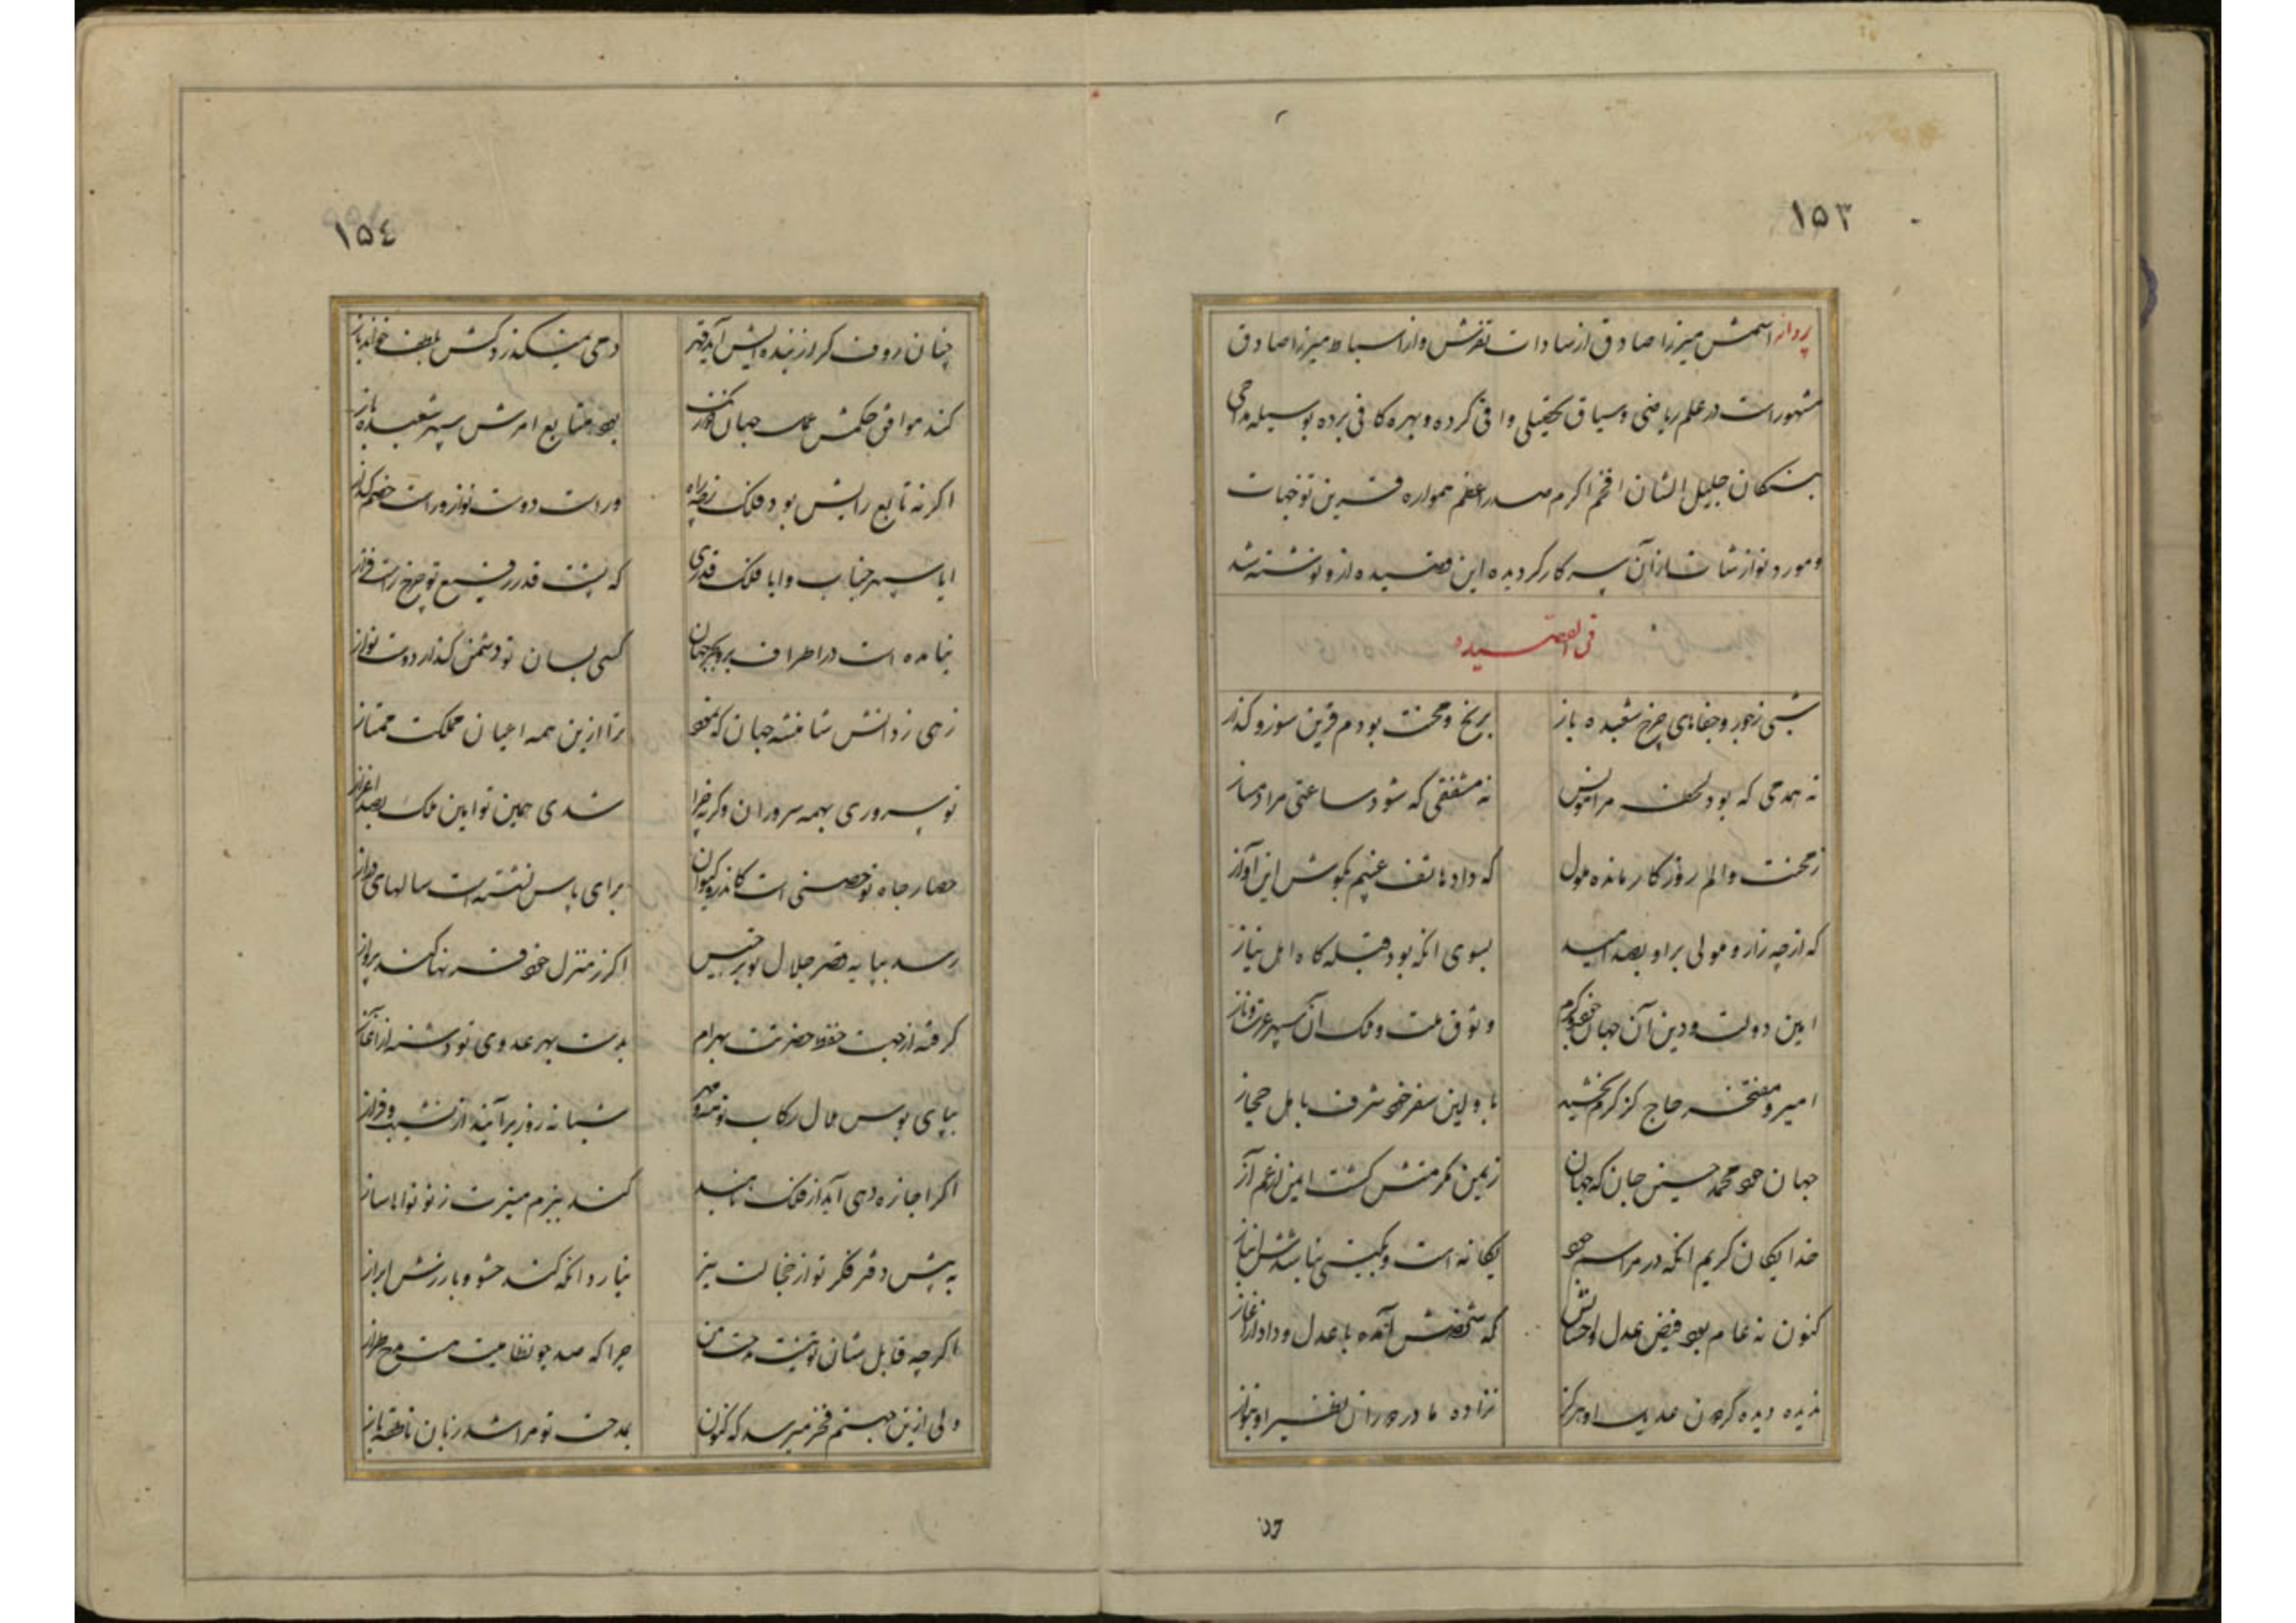 ۱۵۳
پروانه اسمش میرزا صادق از سادات تفرش و از اسباط میرزا صادق
مشهور است در علم ریاضی و سیاق تحصیلی وافی کرده و بهره کافی برده بوسیله مداحی
بندگان جلیل الشان افخم اکرم صدراعظم همواره قرین توجهات
و مورد نوازشات از آن سرکار گردیده این قصیده از و نوشته شد
فی القصیده
شبی ز جور و جفاهای چرخ شعبده باز برنج و محنت بودم قرین سوز و گداز
نه همدمی که بود مرا مونس نه مشفقی که شود ساعتی مرا دمساز
ز محنت و الم روزگار مانده ملول که داد هاتف غیبم بگوش این آواز
که از چه زار و مولی برو بصد امید بسوی انکه بود قبله گاه اهل نیاز
امین دولت و دین آن جهان جود و کرم وثوق ملت و ملک آن سپهر عزت و ناز
امیر و مفتخر حاج کز کرم بخشید باولین سفر خود شرف باهل حجاز
جهان جود محمد حسین جان که جهان ز یمن مکرمتش گشت ایمن از غم آز
خدایگان کریم انکه در مراسم جود یگانه است و بگیتی نباشدش انباز
کنون نه عام بود فیض عدل و احسانش که شخصش آمده با عدل و داد از آغاز
ندیده دیده گردون عدیل او هرگز نزاده مادر دوران نظیر او هنوز
۱۵٤
چنان رؤف کز از بنده ایش آید قهر دمی می نگذرد کش بلطف خواند باز
کند موافق حکمش جهان بود متابع امرش سپهر شعبده باز
اگر نه تابع رایش بود فلک ز چه راه وراست دوست نواز وراست خصم گداز
ایا سپهر جناب و ایا فلک قدری که پست قدر رفیع تو چرخ راست فراز
نیامده است در اطراف بر و بحر جهان کسی بسان تو دشمن گداز دوست نواز
زهی ز دانش شاهنشه جهان که نمود ترا ازین همه اعیان مملکت ممتاز
تو سروری بهمه سروران وگرنه چرا شدی همین تو امین ملک بصد اعزاز
حصار جاه تو حصنی است کاندرو کیوان برای پاس نشسته است سالهای دراز
رسد بپایه قصر جلال تو برجیس اگر ز منزل خود قرنها کند پرواز
گرفته از جهت حفظ حضرتت بهرام بدست بهر عدوی تو دشنه از آغاز
بپای بوس هلال رکاب تو مه و مهر شبانه روز برآیند از نشیب و فراز
اگر اجازه دهی آید از فلک ناهید کند ببزم منیرت ز نو نواها ساز
به پیش دفتر فکر تو از خجالت تیر نیارد انکه کند حشو و بارزش ابراز
اگرچه قابل شان تو نیست مدحت من چرا که صد چو نظامیت هست مدح طراز
ولی ازین جهتم فخر میرسد که کنون بمدحت تو مرا شد زبان ناطقه باز